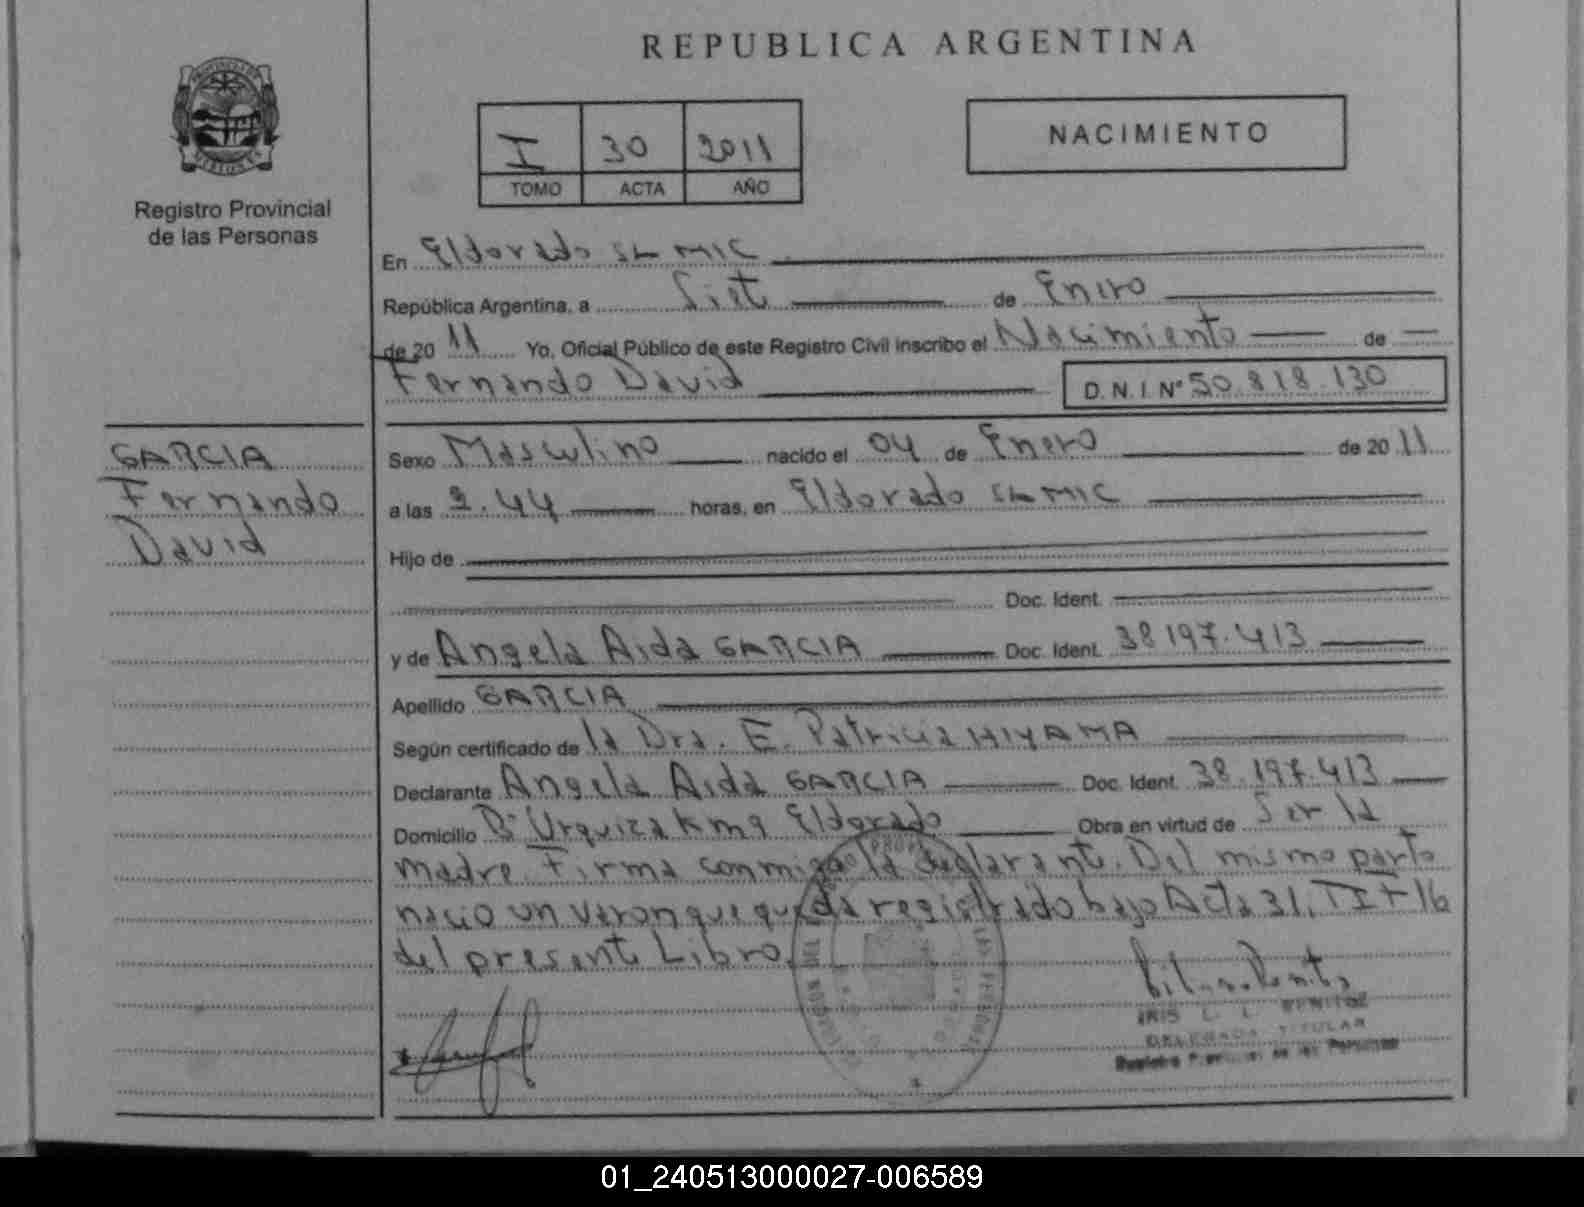 REPUBLICA ARGENTINA
PROVINCIA DE
MISIONES
Registro Provincial
de las Personas
I 30 2011
TOMO ACTA AÑO
NACIMIENTO
En Eldorado SLMIC
República Argentina, a Siete de Enero
de 20 11 Yo, Oficial Público de este Registro Civil inscribo el Nacimiento de
Fernando David D.N.I. Nº 50.818.130
GARCIA
Fernando
David
Sexo Masculino nacido el 04 de Enero de 20 11
a las 9.44 horas, en Eldorado SLMIC
Hijo de
Doc. Ident.
y de Angela Aida GARCIA Doc. Ident. 38197.413
Apellido GARCIA
Según certificado de la Dra. E. Patricia HIYAMA
Declarante Angela Aida GARCIA Doc. Ident. 38.197.413
Domicilio Bº Urquiza Km9 Eldorado Obra en virtud de Ser la
madre. Firma conmigo la declarante. Del mismo parto
nacio un varon que queda registrado bajo Acta 31, TI F 16
del presente Libro.
IRIS L. L. BENITEZ
DELEGADA TITULAR
Registro Provincial de las Personas
01_240513000027-006589